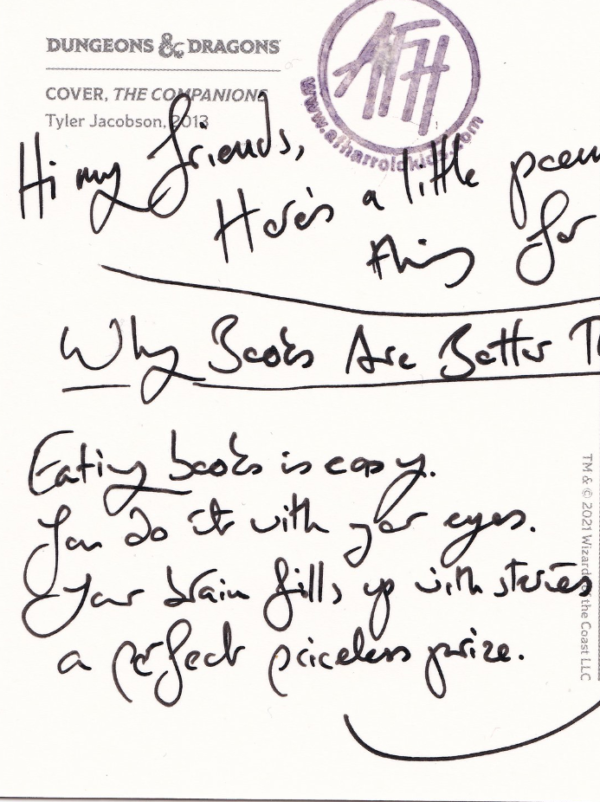 DUNGEONS & DRAGONS
COVER, THE COMPANIONS
Tyler Jacobson, 2013
AFH
www.afharroldkids.com
Hi my friends,
Here's a little poem
thing for
Why Books Are Better T
Eating books is easy.
You do it with your eyes.
Your brain fills up with stories
a perfect priceless prize.
TM & © 2021 Wizards of the Coast LLC